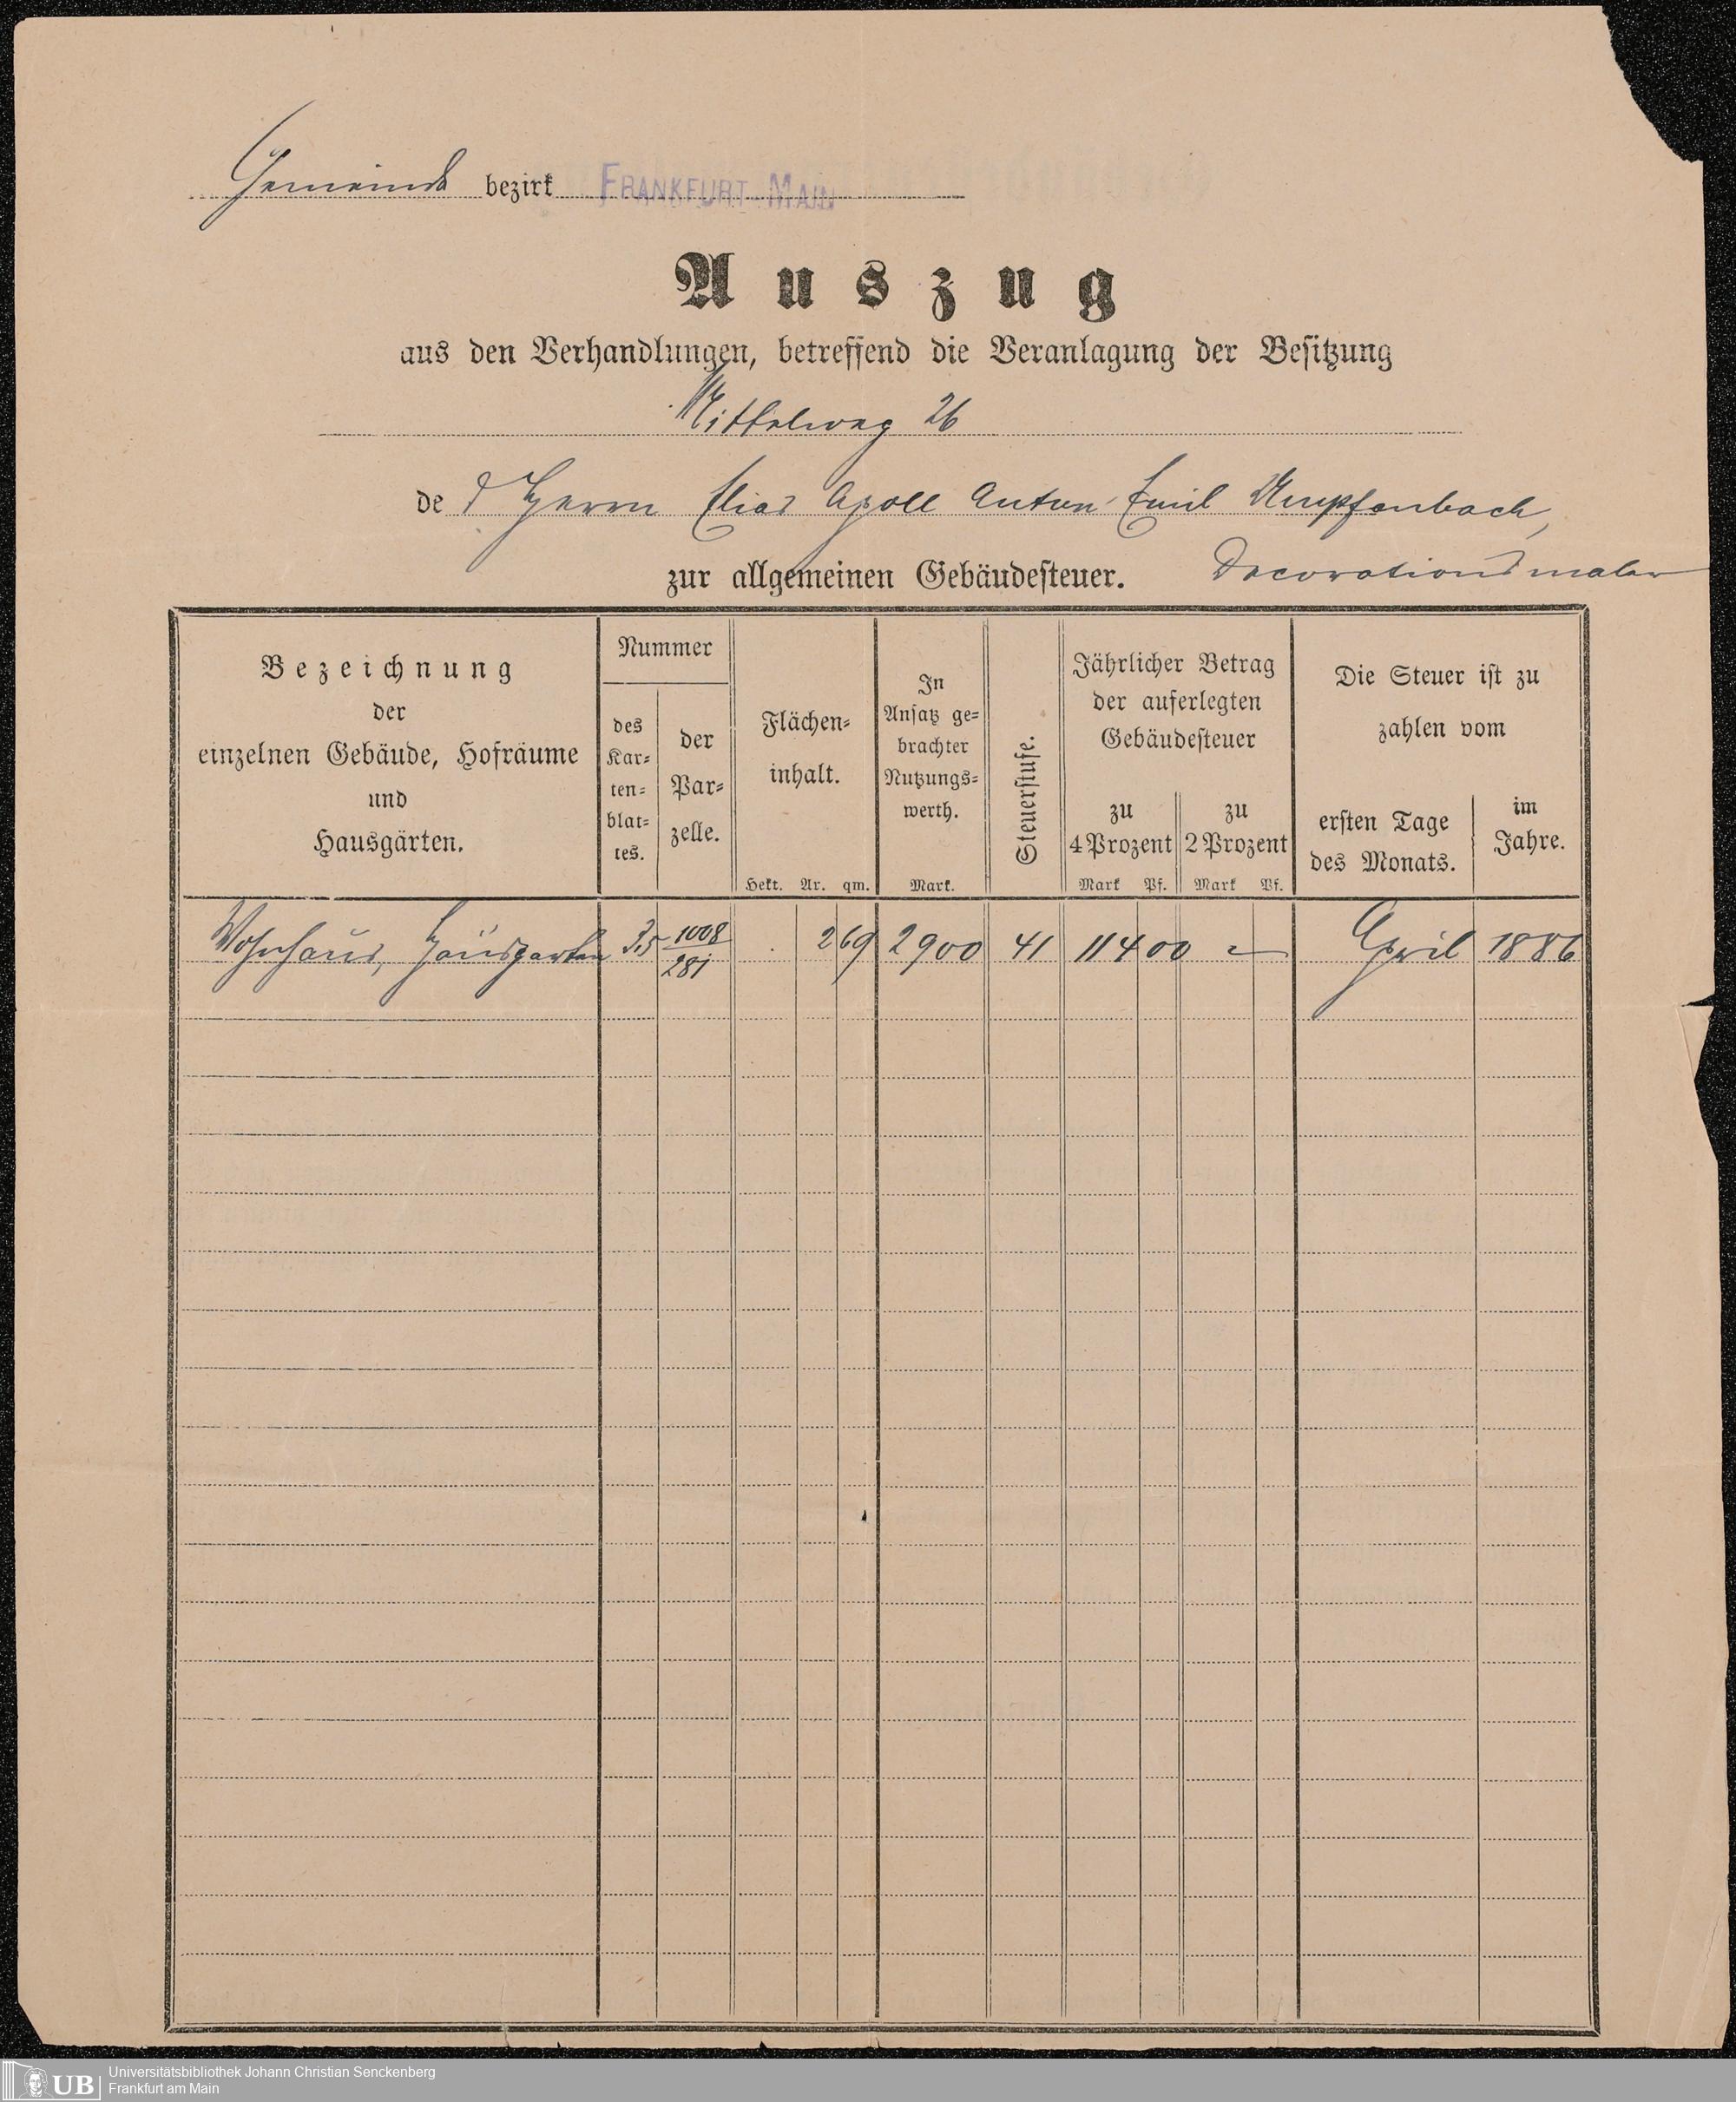 Gemeinde bezirk FRANKFURT-MAIN
Auszug
aus den Verhandlungen, betreffend die Veranlagung der Besitzung
Mittelweg 26
de s Herrn Elias Apoll Anton Emil Umpfenbach,
zur allgemeinen Gebäudesteuer. Decorationsmaler
Bezeichnung
der
einzelnen Gebäude, Hofräume
und
Hausgärten.
Nummer
des
Kar-
ten-
blat-
tes.
der
Par-
zelle.
Flächen-
inhalt.
Hekt. Ar. qm.
In
Ansatz ge-
brachter
Nutzungs-
werth.
Mark.
Steuerstufe.
Jährlicher Betrag
der auferlegten
Gebäudesteuer
zu
4 Prozent
Mark Pf.
zu
2 Prozent
Mark Pf.
Die Steuer ist zu
zahlen vom
ersten Tage
des Monats.
im
Jahre.
Wohnhaus, Hausgarten 35 1008/281 . 2 69 2900 41 114 00 — April 1886
UB Universitätsbibliothek Johann Christian Senckenberg
Frankfurt am Main